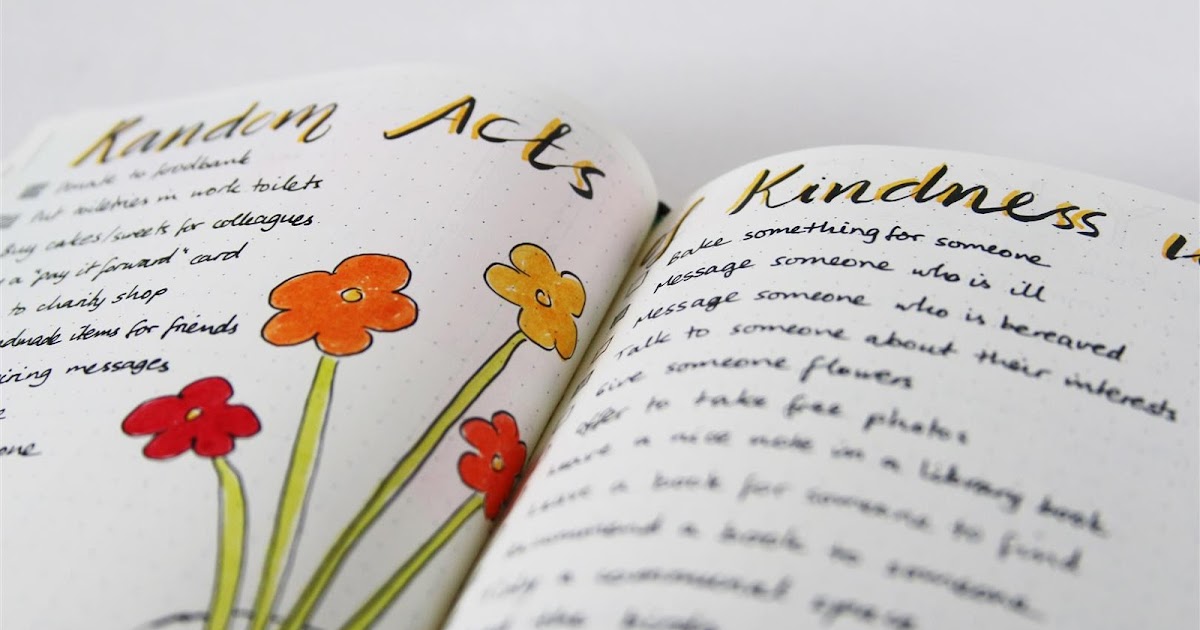 Random Acts
Donate to foodbank
Put toiletries in work toilets
Buy cakes/sweets for colleagues
a "pay it forward" card
to charity shop
admade items for friends
iring messages
one
Kindness
Bake something for someone
Message someone who is ill
Message someone who is bereaved
Talk to someone about their interests
Give someone flowers
Offer to take free photos
Leave a nice note in a library book
Leave a book for someone to find
Recommend a book to someone
a communal space
the birds